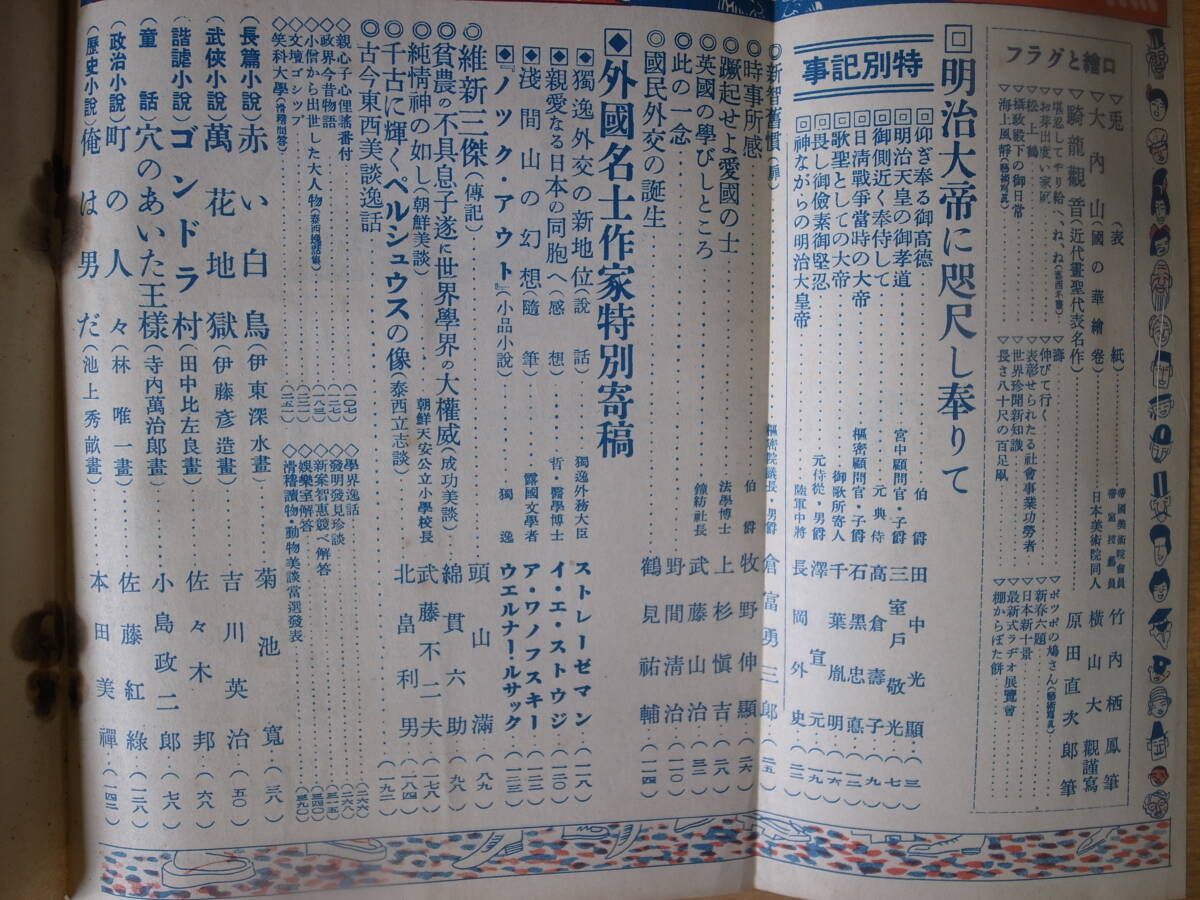 口繪とグラフ
▽兎(表紙) 帝國美術院會員 帝室技藝員 竹內栖鳳筆
▽大內山(國の華繪卷) 日本美術院同人 橫山大觀謹寫
▽騎龍觀音(近代畫聖代表名作) 原田直次郎筆
▽堪忍してやり給へ、ね、ね
▽お芽出度い家
▽松上鶴
▽攝政殿下の御日常
▽海上風靜(藝術寫眞)
▽壽
▽伸びて行く
▽表彰せられたる社會事業功勞者
▽世界珍聞新知識
▽長さ八十尺の百足凧
▼ポツポの鳩さん(藝術寫眞)
▼新春六題
▼日本新十景
▼最新式ラヂオ展覽會
▼棚からぼた餅
回明治大帝に咫尺し奉りて
特別記事
回仰ぎ奉る御高德 伯爵 田中光顯(三)
回明治天皇の御孝道 宮中顧問官・子爵 三室戶敬光(七)
回御側近く奉侍して 元典侍 高倉壽子(九)
回日淸戰爭當時の大帝 樞密顧問官・子爵 石黑忠悳(一二)
回歌聖としての大帝 御歌所寄人 千葉胤明(一六)
回畏し御儉素御堅忍 元侍從・男爵 澤宣元(一九)
回神ながらの明治大皇帝 陸軍中將 長岡外史(二二)
◎新智舊慣(扉) 樞密院議長・男爵 倉富勇三郎(二五)
◎時事所感 伯爵 牧野伸顯(二六)
◎蹶起せよ愛國の士 法學博士 上杉愼吉(二八)
◎英國の學びしところ 鐘紡社長 武藤山治(三二)
◎此の一念 野間淸治(一一〇)
◎國民外交の誕生 鶴見祐輔(一一四)
◆外國名士作家特別寄稿
◆獨逸外交の新地位(說話) 獨逸外務大臣 ストレーゼマン(一一八)
◆親愛なる日本の同胞へ(感想) 哲・醫學博士 イ・エ・ストウジ(一二〇)
◆淺間山の幻想(隨筆) 露國文學者 ア・ワノフスキー(一二二)
◆『ノツク・アウト』(小品小說) 獨逸 ウエルナー・ルサック(一三三)
◎維新三傑(傳記) 頭山滿(八九)
◎貧農の不具息子遂に世界學界の大權威(成功美談) 綿貫六助(九八)
◎純情神の如し(朝鮮美談) 朝鮮天安公立小學校長 武藤不二夫(一七八)
◎千古に輝くペルシュウスの像(泰西立志談) 北畠利男(一八四)
◎古今東西美談逸話(一九二)
◇親心子心俚謠番付(二〇七)
◇政界今昔物語(二二七)
◇小僧から出世した大人物(一八三)
◇文壇ゴシップ(二二一)
◇笑科大學(滑稽問答)(二五一)
◇學界逸話(二六六)
◇發明發見珍談(二六八)
◇新案智惠競べ解答(三一五)
◇娛樂室解答(三四〇)
◇滑稽讀物・動物美談當選發表(三九〇)
(長篇小說)赤い白鳥(伊東深水畫) 菊池寬(三八)
(武俠小說)萬花地獄(伊藤彥造畫) 吉川英治(五〇)
(諧謔小說)ゴンドラ村(田中比左良畫) 佐々木邦(六八)
(童話)穴のあいた王樣(寺內萬治郎畫) 小島政二郎(七八)
(政治小說)町の人々(林唯一畫) 佐藤紅綠(一二八)
(歷史小說)俺は男だ(池上秀畝畫) 本田美禪(一四二)